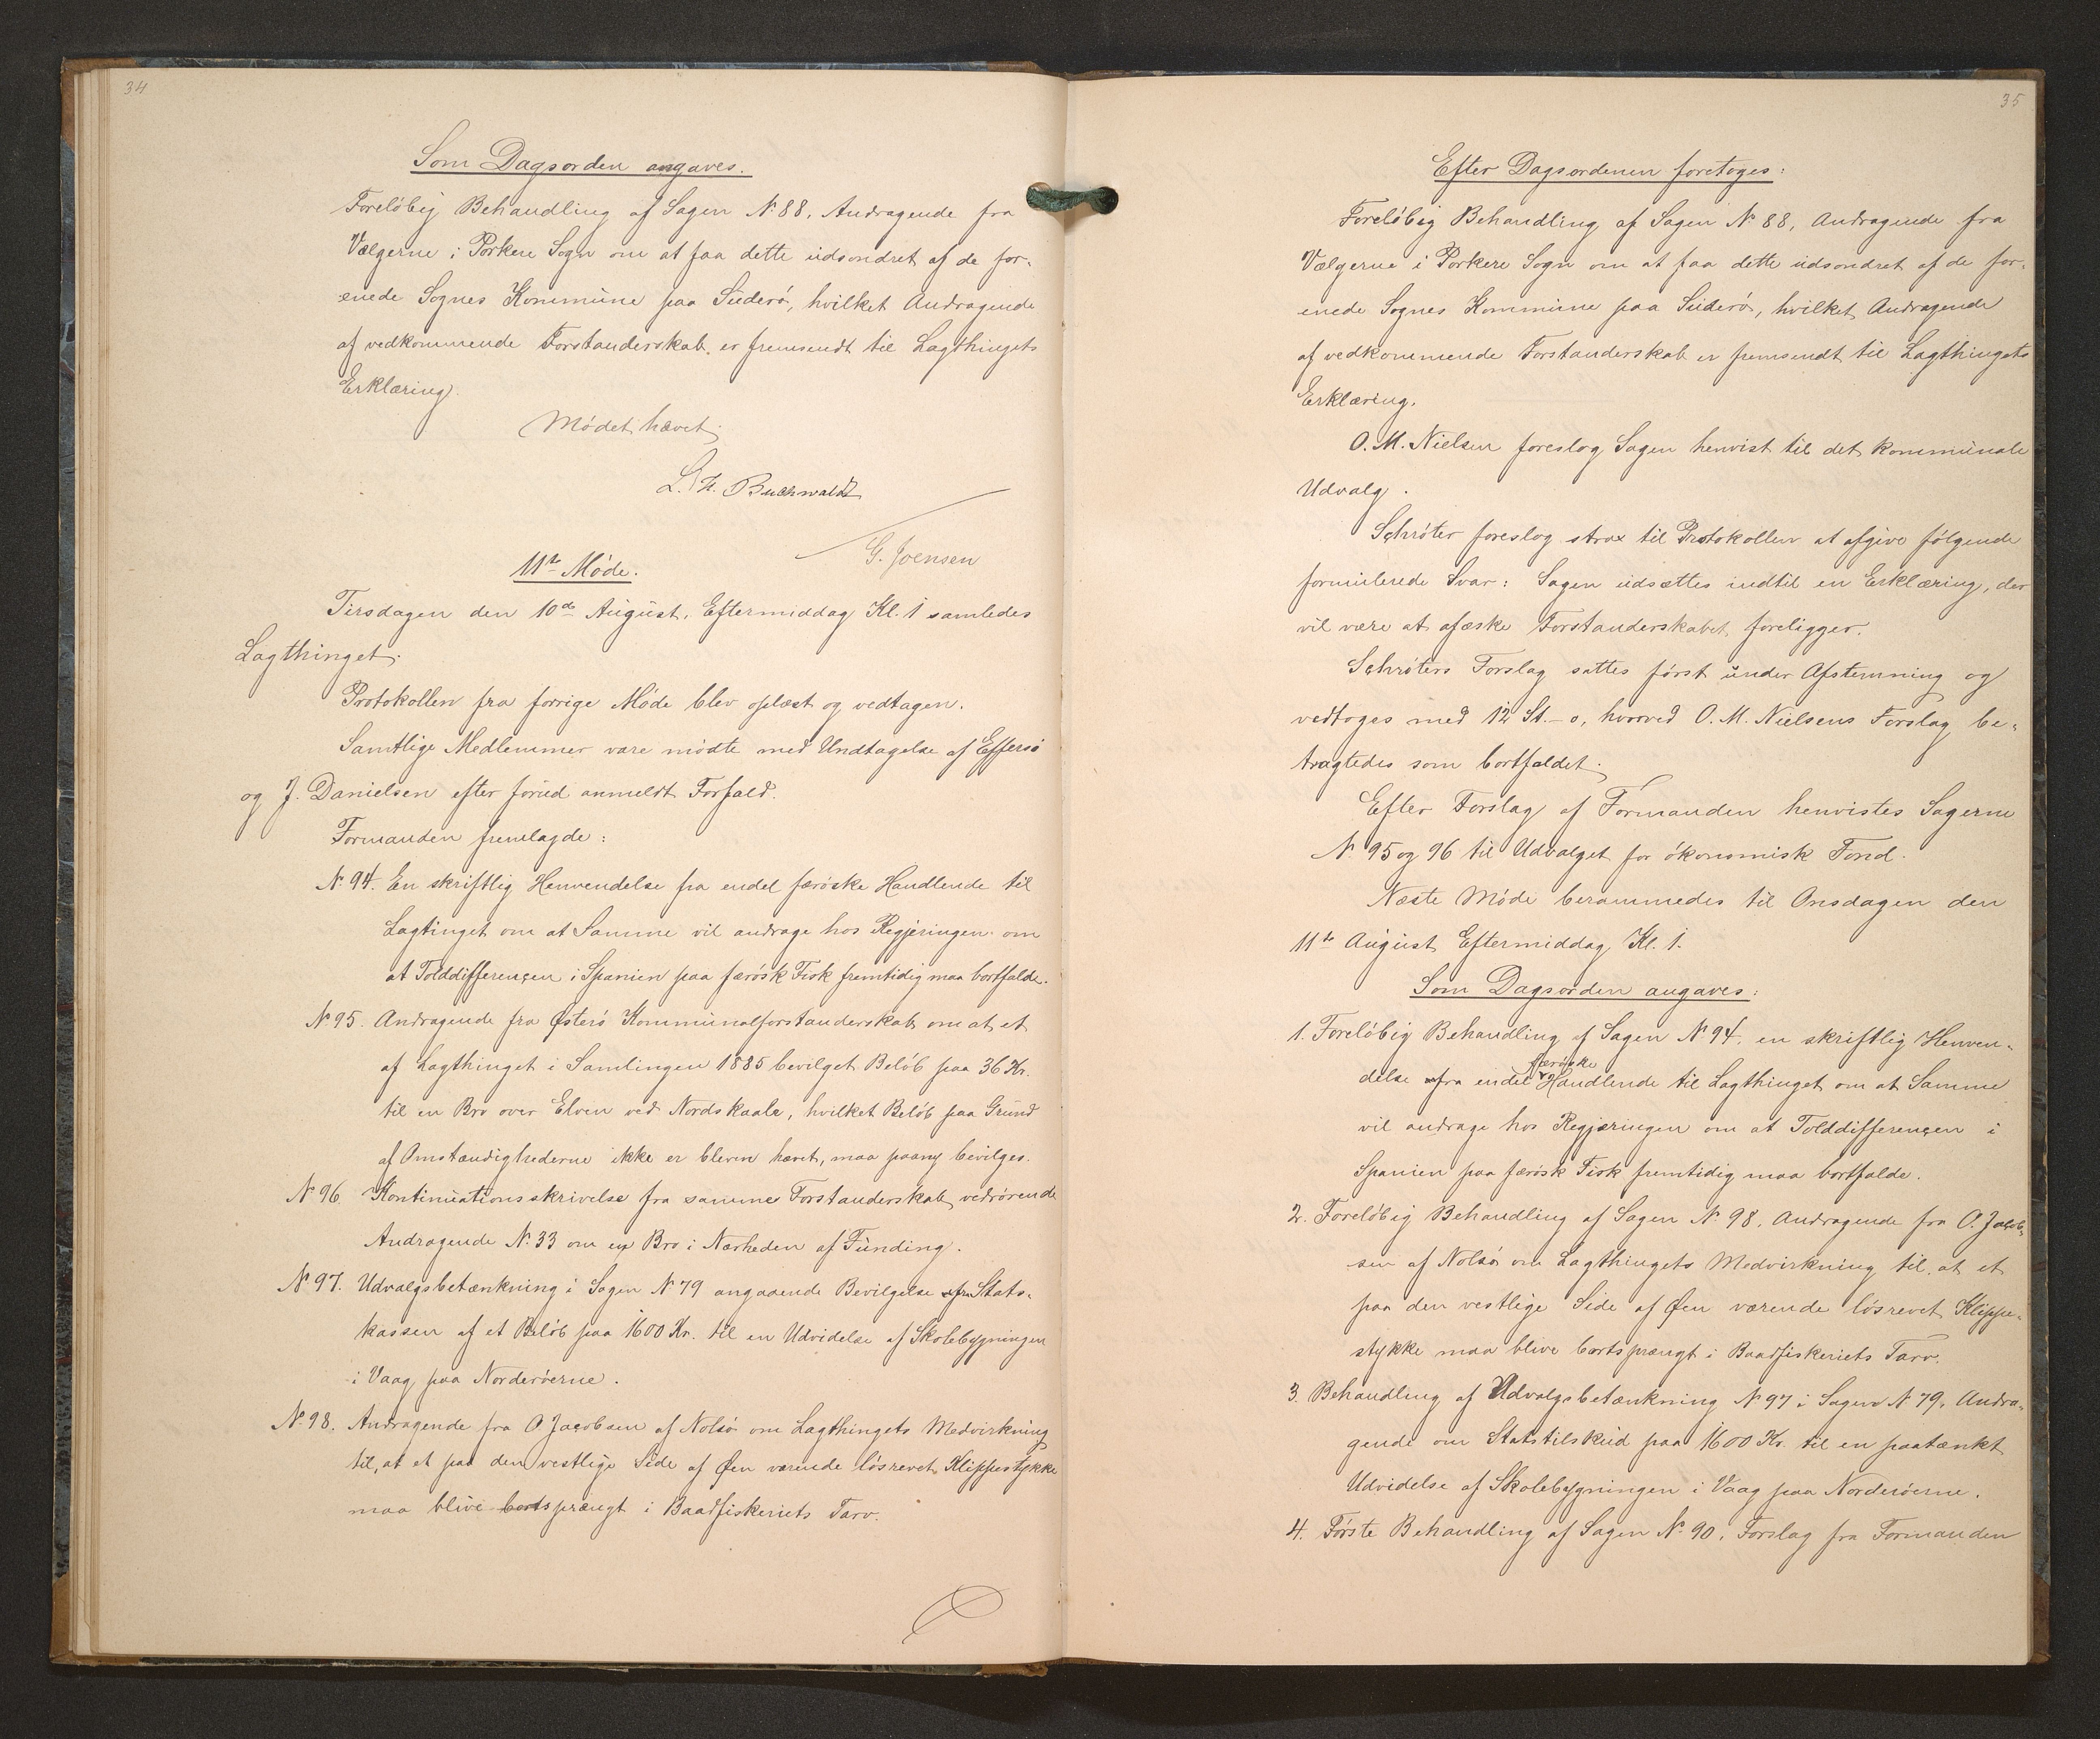 34
Som Dagsorden angaves.
Foreløbig Behandling af Sagen N. 88, Andragende fra
Vælgerne i Porkere Sogn om at faa dette udsondret af de for-
enede Sognes Kommune paa Suderø, hvilket Andragende
af vedkommende Forstanderskab er fremsendt til Lagthingets
Erklæring.
Mødet hævet.
L. F. Buchwaldt
G. Joensen
11te Møde.
Tirsdagen den 10de August, Eftermiddag Kl. 1 samledes
Lagthinget.
Protokollen fra forrige Møde blev oplæst og vedtagen.
Samtlige Medlemmer vare mødte med Undtagelse af Effersø
og J. Danielsen efter forud anmeldt Forfald.
Formanden fremlagde:
N. 94. En skriftlig Henvendelse fra endel færøske Handlende til
Lagtinget om at Samme vil andrage hos Regjeringen om
at Tolddifferencen i Spanien paa færøsk Fisk fremtidig maa bortfalde.
N. 95. Andragende fra Østerø Kommunalforstanderskab om at et
af Lagthinget i Samlingen 1885 bevilget Beløb paa 36 Kr.
til en Bro over Elven ved Nordskaale, hvilket Beløb paa Grund
af Omstændighederne ikke er bleven hævet, maa paany bevilges.
N. 96. Kontinuationsskrivelse fra samme Forstanderskab vedrørende
Andragende N. 33 om en Bro i Nærheden af Funding.
N. 97. Udvalgsbetænkning i Sagen N. 79 angaaende Bevilgelse fra Stats-
kassen af et Beløb paa 1600 Kr. til en Udvidelse af Skolebygningen
i Vaag paa Norderøerne.
N. 98. Andragende fra O Jacobsen af Nolsø om Lagthingets Medvirkning
til, at et paa den vestlige Side af Øen værende løsrevet Klippestykke
maa blive bortsprængt i Baadfiskeriets Tarv.
35
Efter Dagsordenen foretoges:
Foreløbig Behandling af Sagen N. 88, Andragende fra
Vælgerne i Porkere Sogn om at faa dette udsondret af de for-
enede Sognes Kommune paa Suderø, hvilket Andragende
af vedkommende Forstanderskab er fremsendt til Lagthingets
Erklæring.
O. M. Nielsen foreslog Sagen henvist til det kommunale
Udvalg.
Schrøter foreslog strax til Protokollen at afgive følgende
formulerede Svar: Sagen udsættes indtil en Erklæring, der
vil være at afæske Forstanderskabet, foreligger.
Schrøters Forslag sattes først under Afstemning og
vedtoges med 12 St. - 0, hvorved O. M. Nielsens Forslag be-
tragtedes som bortfaldet.
Efter Forslag af Formanden henvistes Sagerne
N. 95 og 96 til Udvalget for økonomisk Fond.
Næste Møde berammedes til Onsdagen den
11te August Eftermiddag Kl. 1.
Som Dagsorden angaves:
1. Foreløbig Behandling af Sagen N. 94. en skriftlig Henven-
delse fra endel færøske Handlende til Lagthinget om at Samme
vil andrage hos Regjeringen om at Tolddifferencen i
Spanien paa færøsk Fisk fremtidig maa bortfalde.
2. Foreløbig Behandling af Sagen N. 98. Andragende fra O. Jacob-
sen af Nolsø om Lagthingets Medvirkning til, at et
paa den vestlige Side af Øen værende løsrevet Klippe-
stykke maa blive bortsprængt i Baadfiskeriets Tarv.
3. Behandling af Udvalgsbetænkning N. 97 i Sagen N. 79, Andra-
gende om Statstilskud paa 1600 Kr. til en paatænkt
Udvidelse af Skolebygningen i Vaag paa Norderøerne.
4. Første Behandling af Sagen N. 90. Forslag fra Formanden